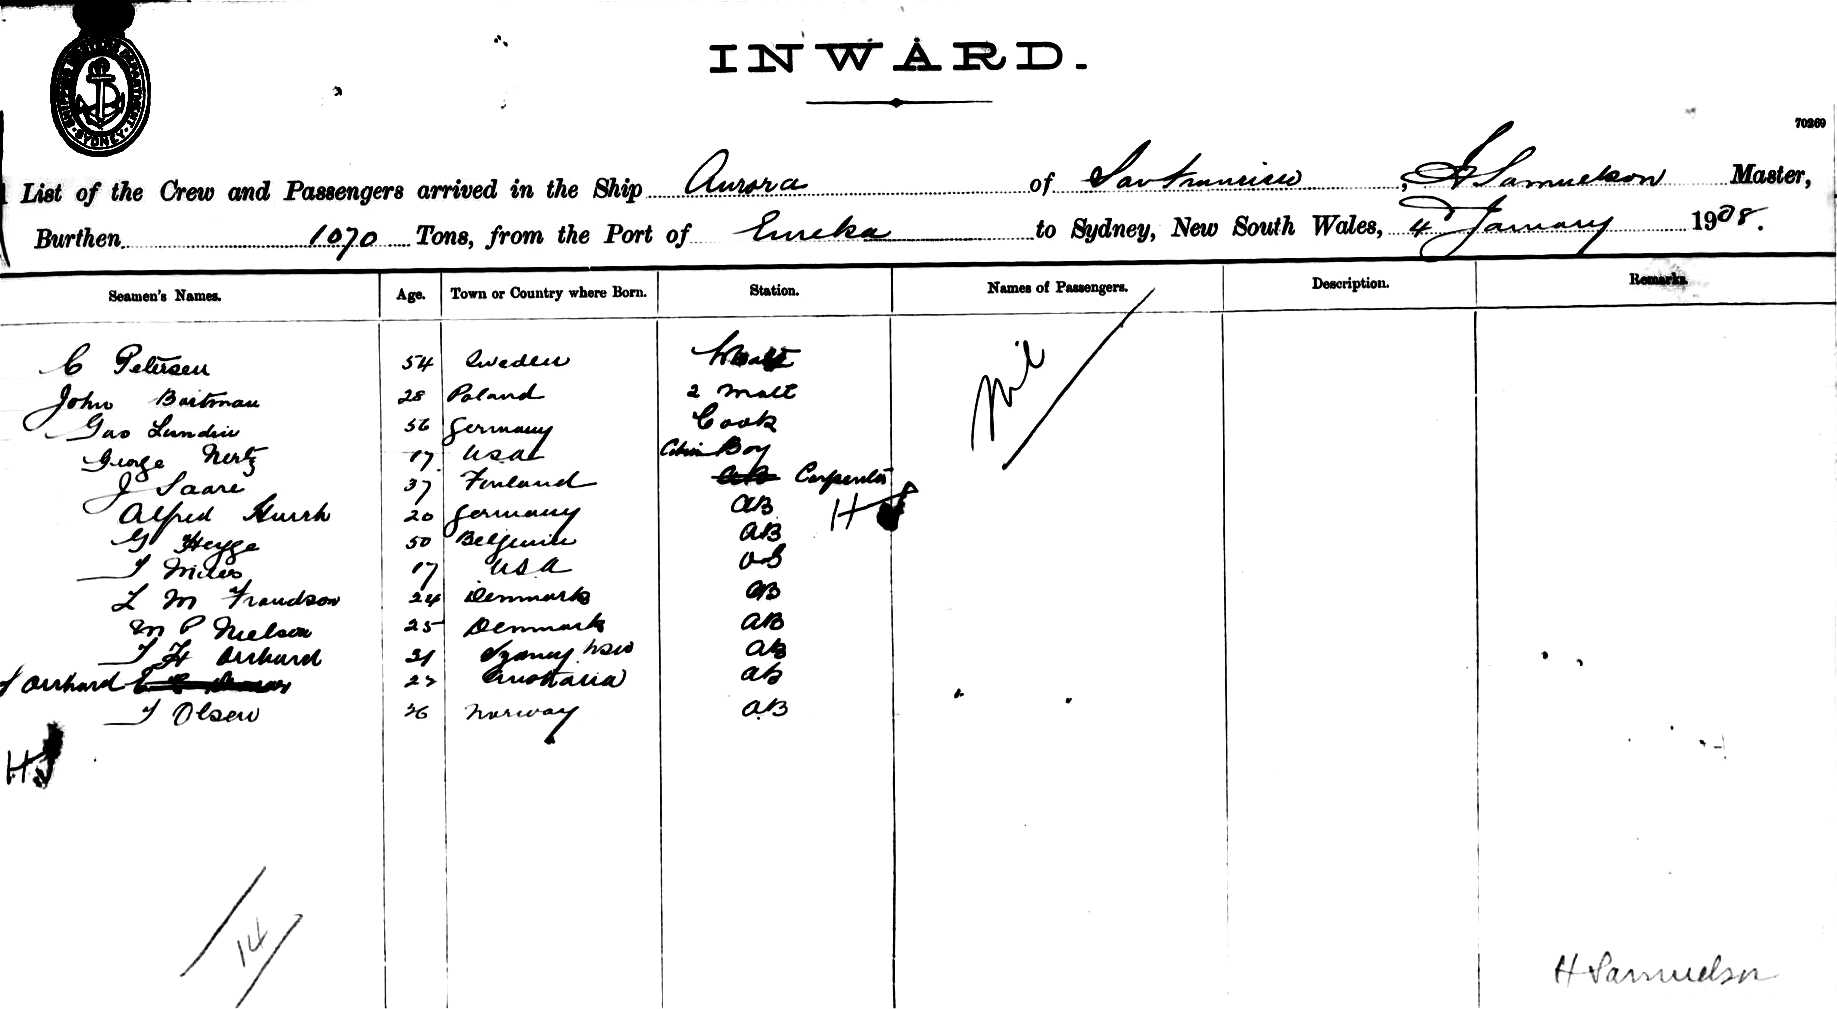 INWARD.
70269
List of the Crew and Passengers arrived in the Ship Aurora of San Francisco, H Samuelson Master,
Burthen 1070 Tons, from the Port of Eureka to Sydney, New South Wales, 4th January 1908.
Seamen's Names. Age. Town or Country where Born. Station. Names of Passengers. Description. Remarks.
C Petersen 54 Sweden Mate Nil
John Bartman 28 Poland 2 Mate
Gus Lundin 56 Germany Cook
George Nertz 17 USA Cabin Boy
J Saare 37 Finland AB Carpenter
Alfred 20 Germany AB
G Heyge 50 Belgium AB
T Miles 17 USA OS
L M Frandson 24 Denmark AB
M P Nielson 25 Denmark AB
T H Orchard 21 Sydney NSW AB
Orchard Australia AB
T Olsen 26 Norway AB
14
H Samuelson
SYDNEY